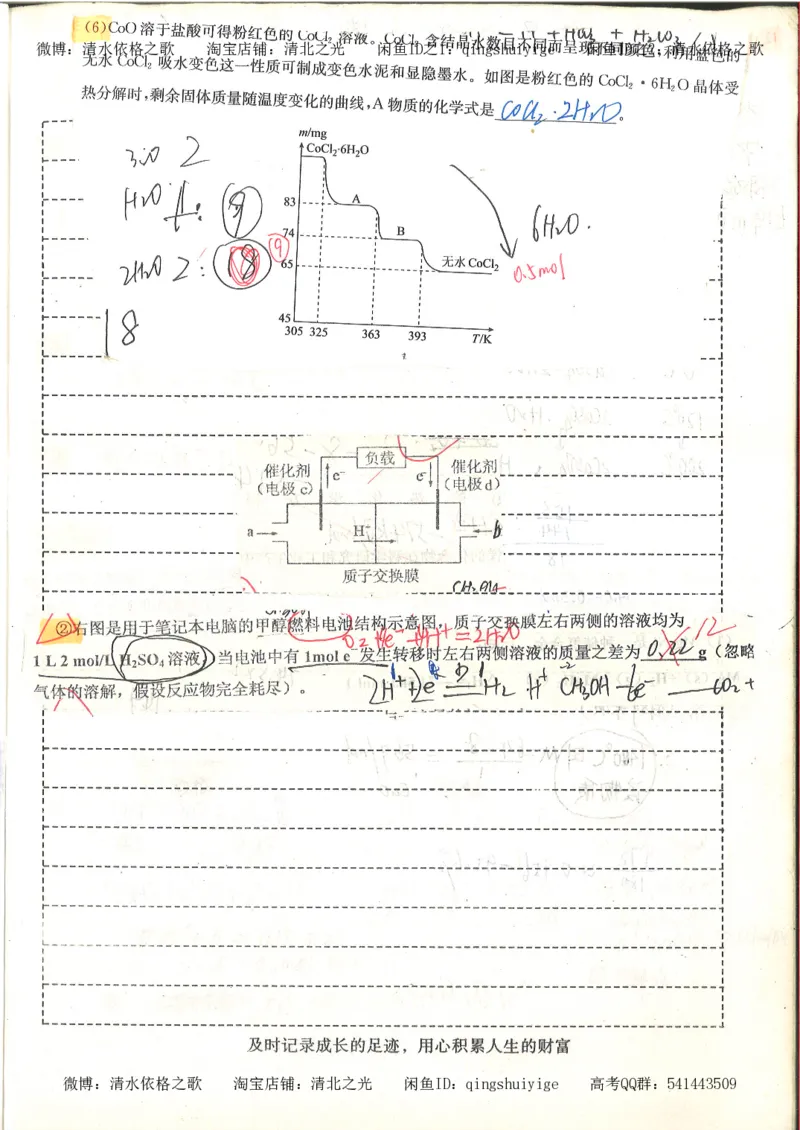 (6)CoO溶于盐酸可得粉红色的CoCl₂溶液。CoCl₂含结晶水数目不同而呈现不同颜色，利用蓝色的
微博：清水依格之歌 淘宝店铺：清北之光 闲鱼ID之1：qingshuiyige 闲鱼ID之2：清水依格之歌
无水CoCl₂吸水变色这一性质可制成变色水泥和显隐墨水。如图是粉红色的CoCl₂·6H₂O晶体受
热分解时，剩余固体质量随温度变化的曲线，A物质的化学式是 CoCl₂·2H₂O。
m/mg
CoCl₂·6H₂O
83 A
74 B
65 无水CoCl₂
45
305 325 363 393 T/K
H₂O 1: 9
2H₂O 2: 18 9
18
6H₂O.
0.5mol
负载
催化剂
（电极c）
e⁻ e⁻
催化剂
（电极d）
a H⁺ b
质子交换膜
CH₃OH
②右图是用于笔记本电脑的甲醇燃料电池结构示意图，质子交换膜左右两侧的溶液均为
O₂+4e⁻+4H⁺=2H₂O
1 L 2 mol/L H₂SO₄溶液，当电池中有1mol e⁻发生转移时左右两侧溶液的质量之差为 0.22 12 g（忽略
气体的溶解，假设反应物完全耗尽）。
2H⁺+2e⁻=H₂ CH₃OH-6e⁻ —CO₂+
及时记录成长的足迹，用心积累人生的财富
微博：清水依格之歌 淘宝店铺：清北之光 闲鱼ID：qingshuiyige 高考QQ群：541443509